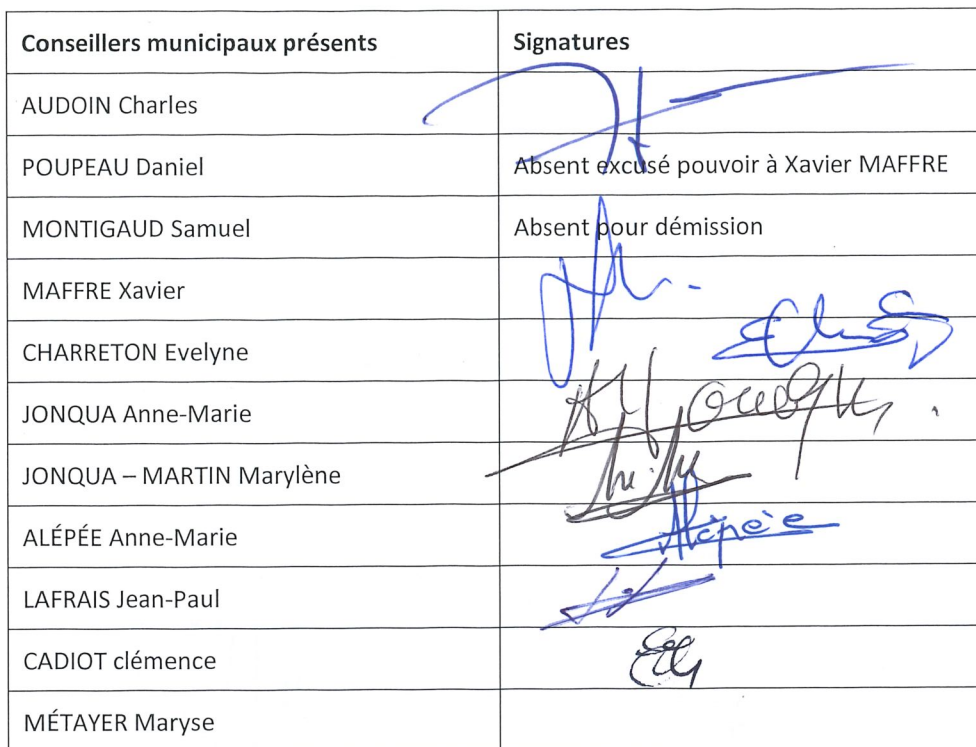 Conseillers municipaux présents Signatures
AUDOIN Charles
POUPEAU Daniel Absent excusé pouvoir à Xavier MAFFRE
MONTIGAUD Samuel Absent pour démission
MAFFRE Xavier
CHARRETON Evelyne
JONQUA Anne-Marie
JONQUA – MARTIN Marylène
ALÉPÉE Anne-Marie Alépée
LAFRAIS Jean-Paul
CADIOT clémence
MÉTAYER Maryse